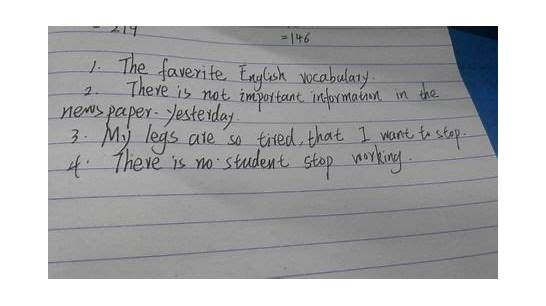 = 219
=146
1. The faverite English vocabulary.
2. There is not important information in the
news paper. yesterday.
3. My legs are so tired, that I want to stop.
4. There is no student stop working.